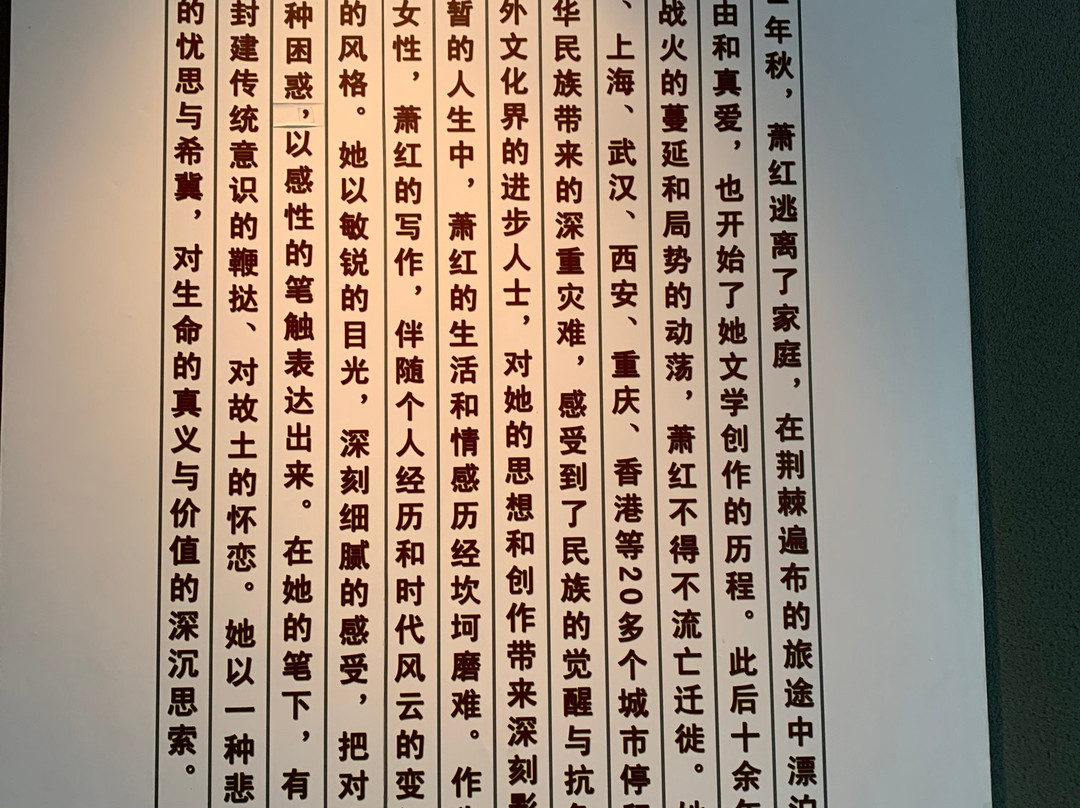 年秋，萧红逃离了家庭，在荆棘遍布的旅途中漂泊
由和真爱，也开始了她文学创作的历程。此后十余年
战火的蔓延和局势的动荡，萧红不得不流亡迁徙。
、上海、武汉、西安、重庆、香港等20多个城市停
华民族带来的深重灾难，感受到了民族的觉醒与抗
外文化界的进步人士，对她的思想和创作带来深刻影
暂的人生中，萧红的生活和情感历经坎坷磨难。作
女性，萧红的写作，伴随个人经历和时代风云的变
的风格。她以敏锐的目光，深刻细腻的感受，把对
种困惑，以感性的笔触表达出来。在她的笔下，有
封建传统意识的鞭挞、对故土的怀恋。她以一种悲
的忧思与希冀，对生命的真义与价值的深沉思索。